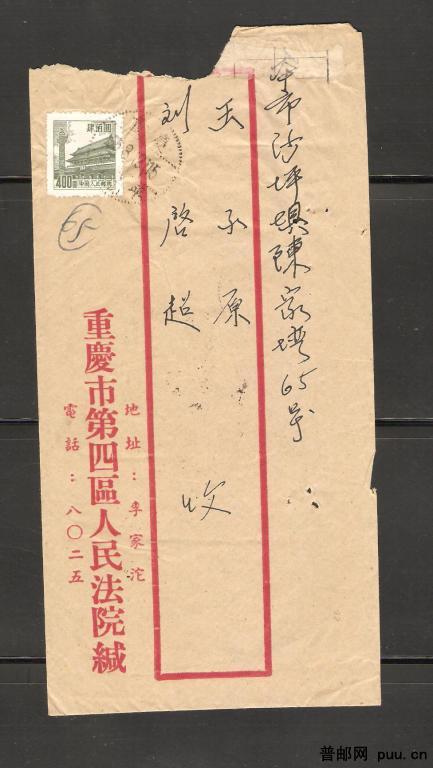 本市沙坪埧陳家塆65号
王子原
刘啓超 收
肆佰圆
400
中国人民邮政
65
地址：李家沱
重慶市第四區人民法院緘
電話：八〇二五
普邮网 puu.cn